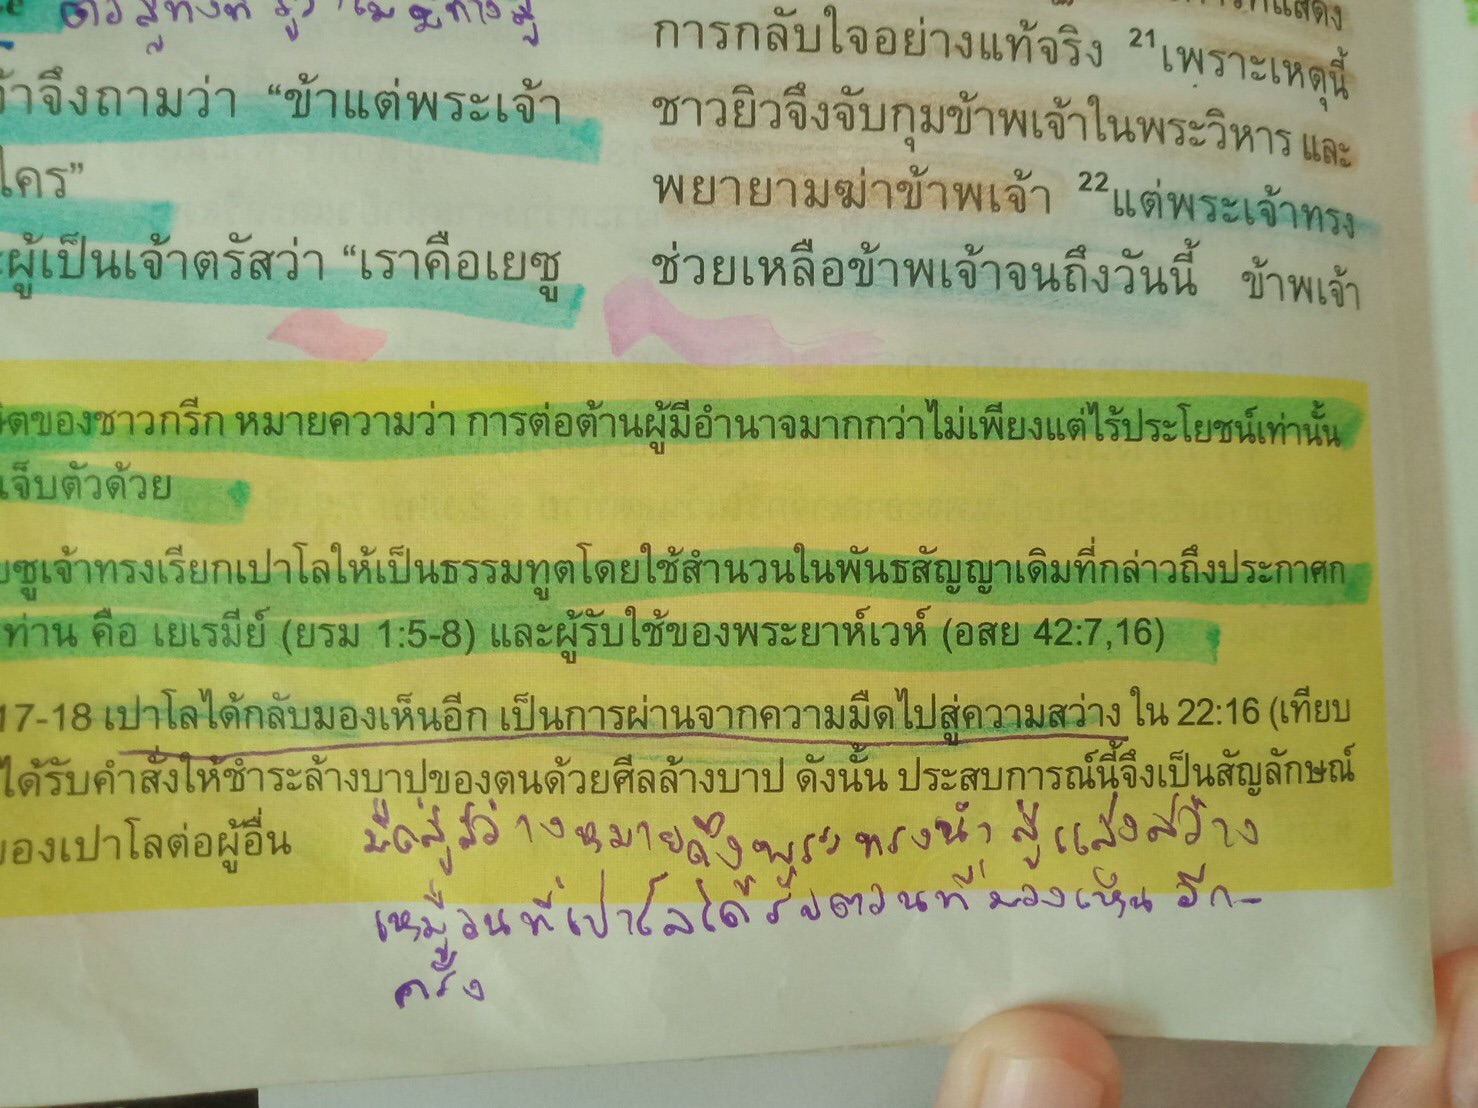 ตอสู้ทั้งที่รู้ว่าไม่มีทางสู้
จ้าจึงถามว่า “ข้าแต่พระเจ้า
ใคร”
ผู้เป็นเจ้าตรัสว่า “เราคือเยซู
การกลับใจอย่างแท้จริง 21เพราะเหตุนี้
ชาวยิวจึงจับกุมข้าพเจ้าในพระวิหาร และ
พยายามฆ่าข้าพเจ้า 22แต่พระเจ้าทรง
ช่วยเหลือข้าพเจ้าจนถึงวันนี้ ข้าพเจ้า
ของชาวกรีก หมายความว่า การต่อต้านผู้มีอำนาจมากกว่าไม่เพียงแต่ไร้ประโยชน์เท่านั้น
เจ็บตัวด้วย
ยซูเจ้าทรงเรียกเปาโลให้เป็นธรรมทูตโดยใช้สำนวนในพันธสัญญาเดิมที่กล่าวถึงประกาศก
ท่าน คือ เยเรมีย์ (ยรม 1:5-8) และผู้รับใช้ของพระยาห์เวห์ (อสย 42:7,16)
17-18 เปาโลได้กลับมองเห็นอีก เป็นการผ่านจากความมืดไปสู่ความสว่าง ใน 22:16 (เทียบ
ได้รับคำสั่งให้ชำระล้างบาปของตนด้วยศีลล้างบาป ดังนั้น ประสบการณ์นี้จึงเป็นสัญลักษณ์
ของเปาโลต่อผู้อื่น
มืดสู่สว่างหมายถึงพระทรงนำสู่แสงสว่าง
เหมือนที่เปาโลได้รับตอนที่มองเห็นอีก-
ครั้ง